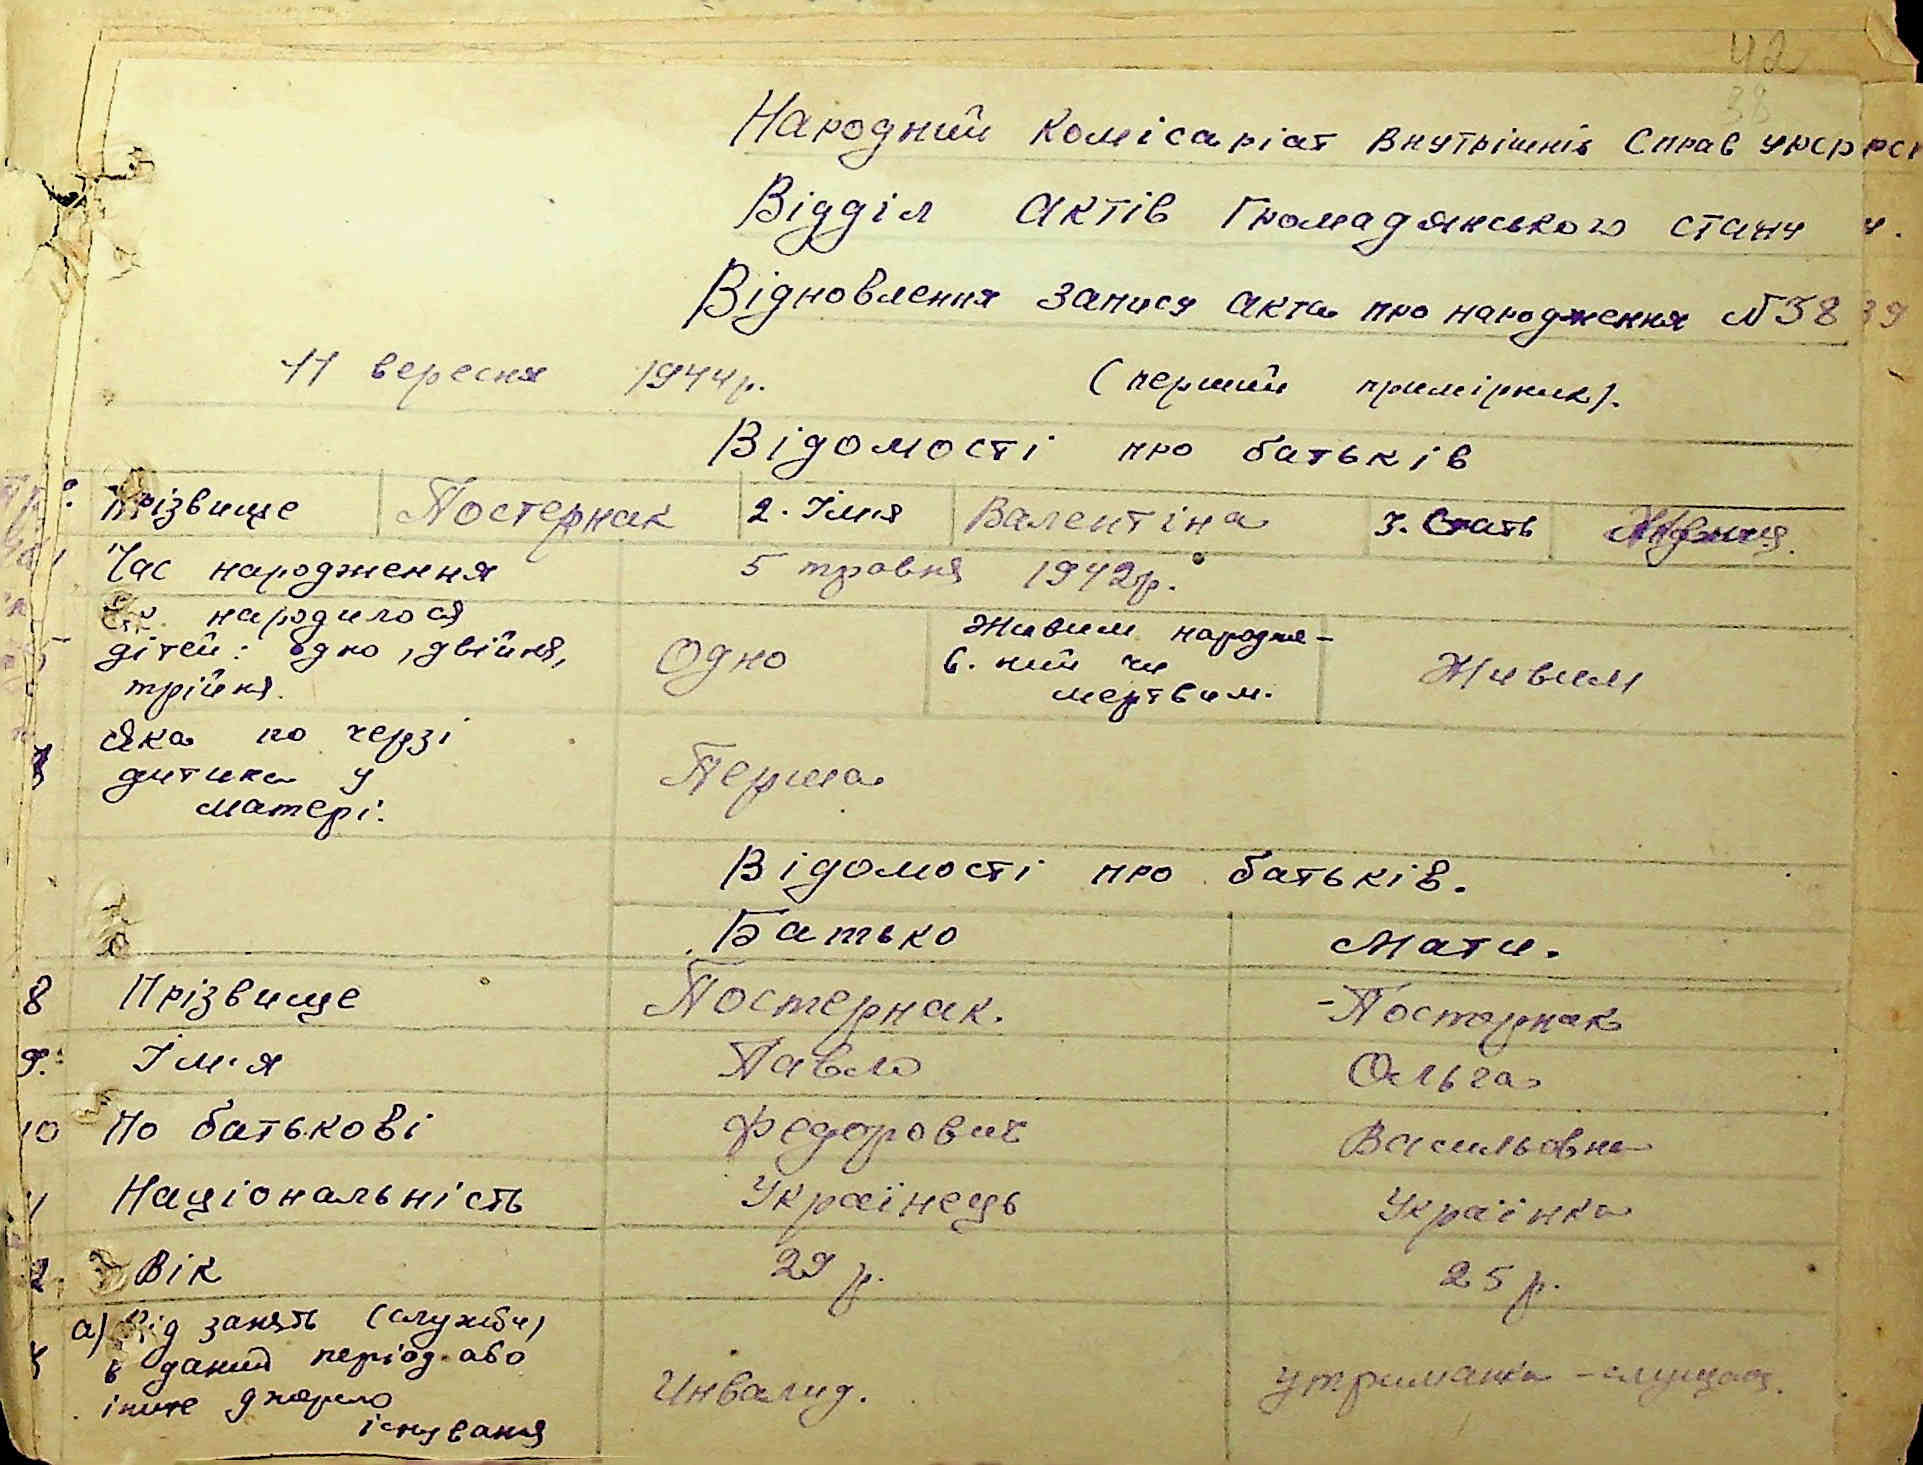 42
38
Народний Комісаріат Внутрішніх Справ УРСР
Відділ Актів Громадянського стану
Відновлення запису акта про народження №38
11 вересня 1944р. (перший примірник).
Відомості про батьків
Прізвище Постернак 2. Імя Валентіна 3. Стать
Час народження 5 травня 1942р.
народилося
дітей: одно, двійня,
трійня.
Одно
Живим народже-
6. ний чи
мертвим.
Живим
Яка по черзі
дитина у
матері:
Перша
Відомості про батьків.
Батько Мати.
8 Прізвище Постернак. Постернак
9. Імя Павло Ольга
10 По батькові Федорович Васильовна
Національність Українець Українка
Вік 29 р. 25 р.
а) Вид занять (служби)
в даний період або
інше джерело
існування
Инвалид.
утриманка